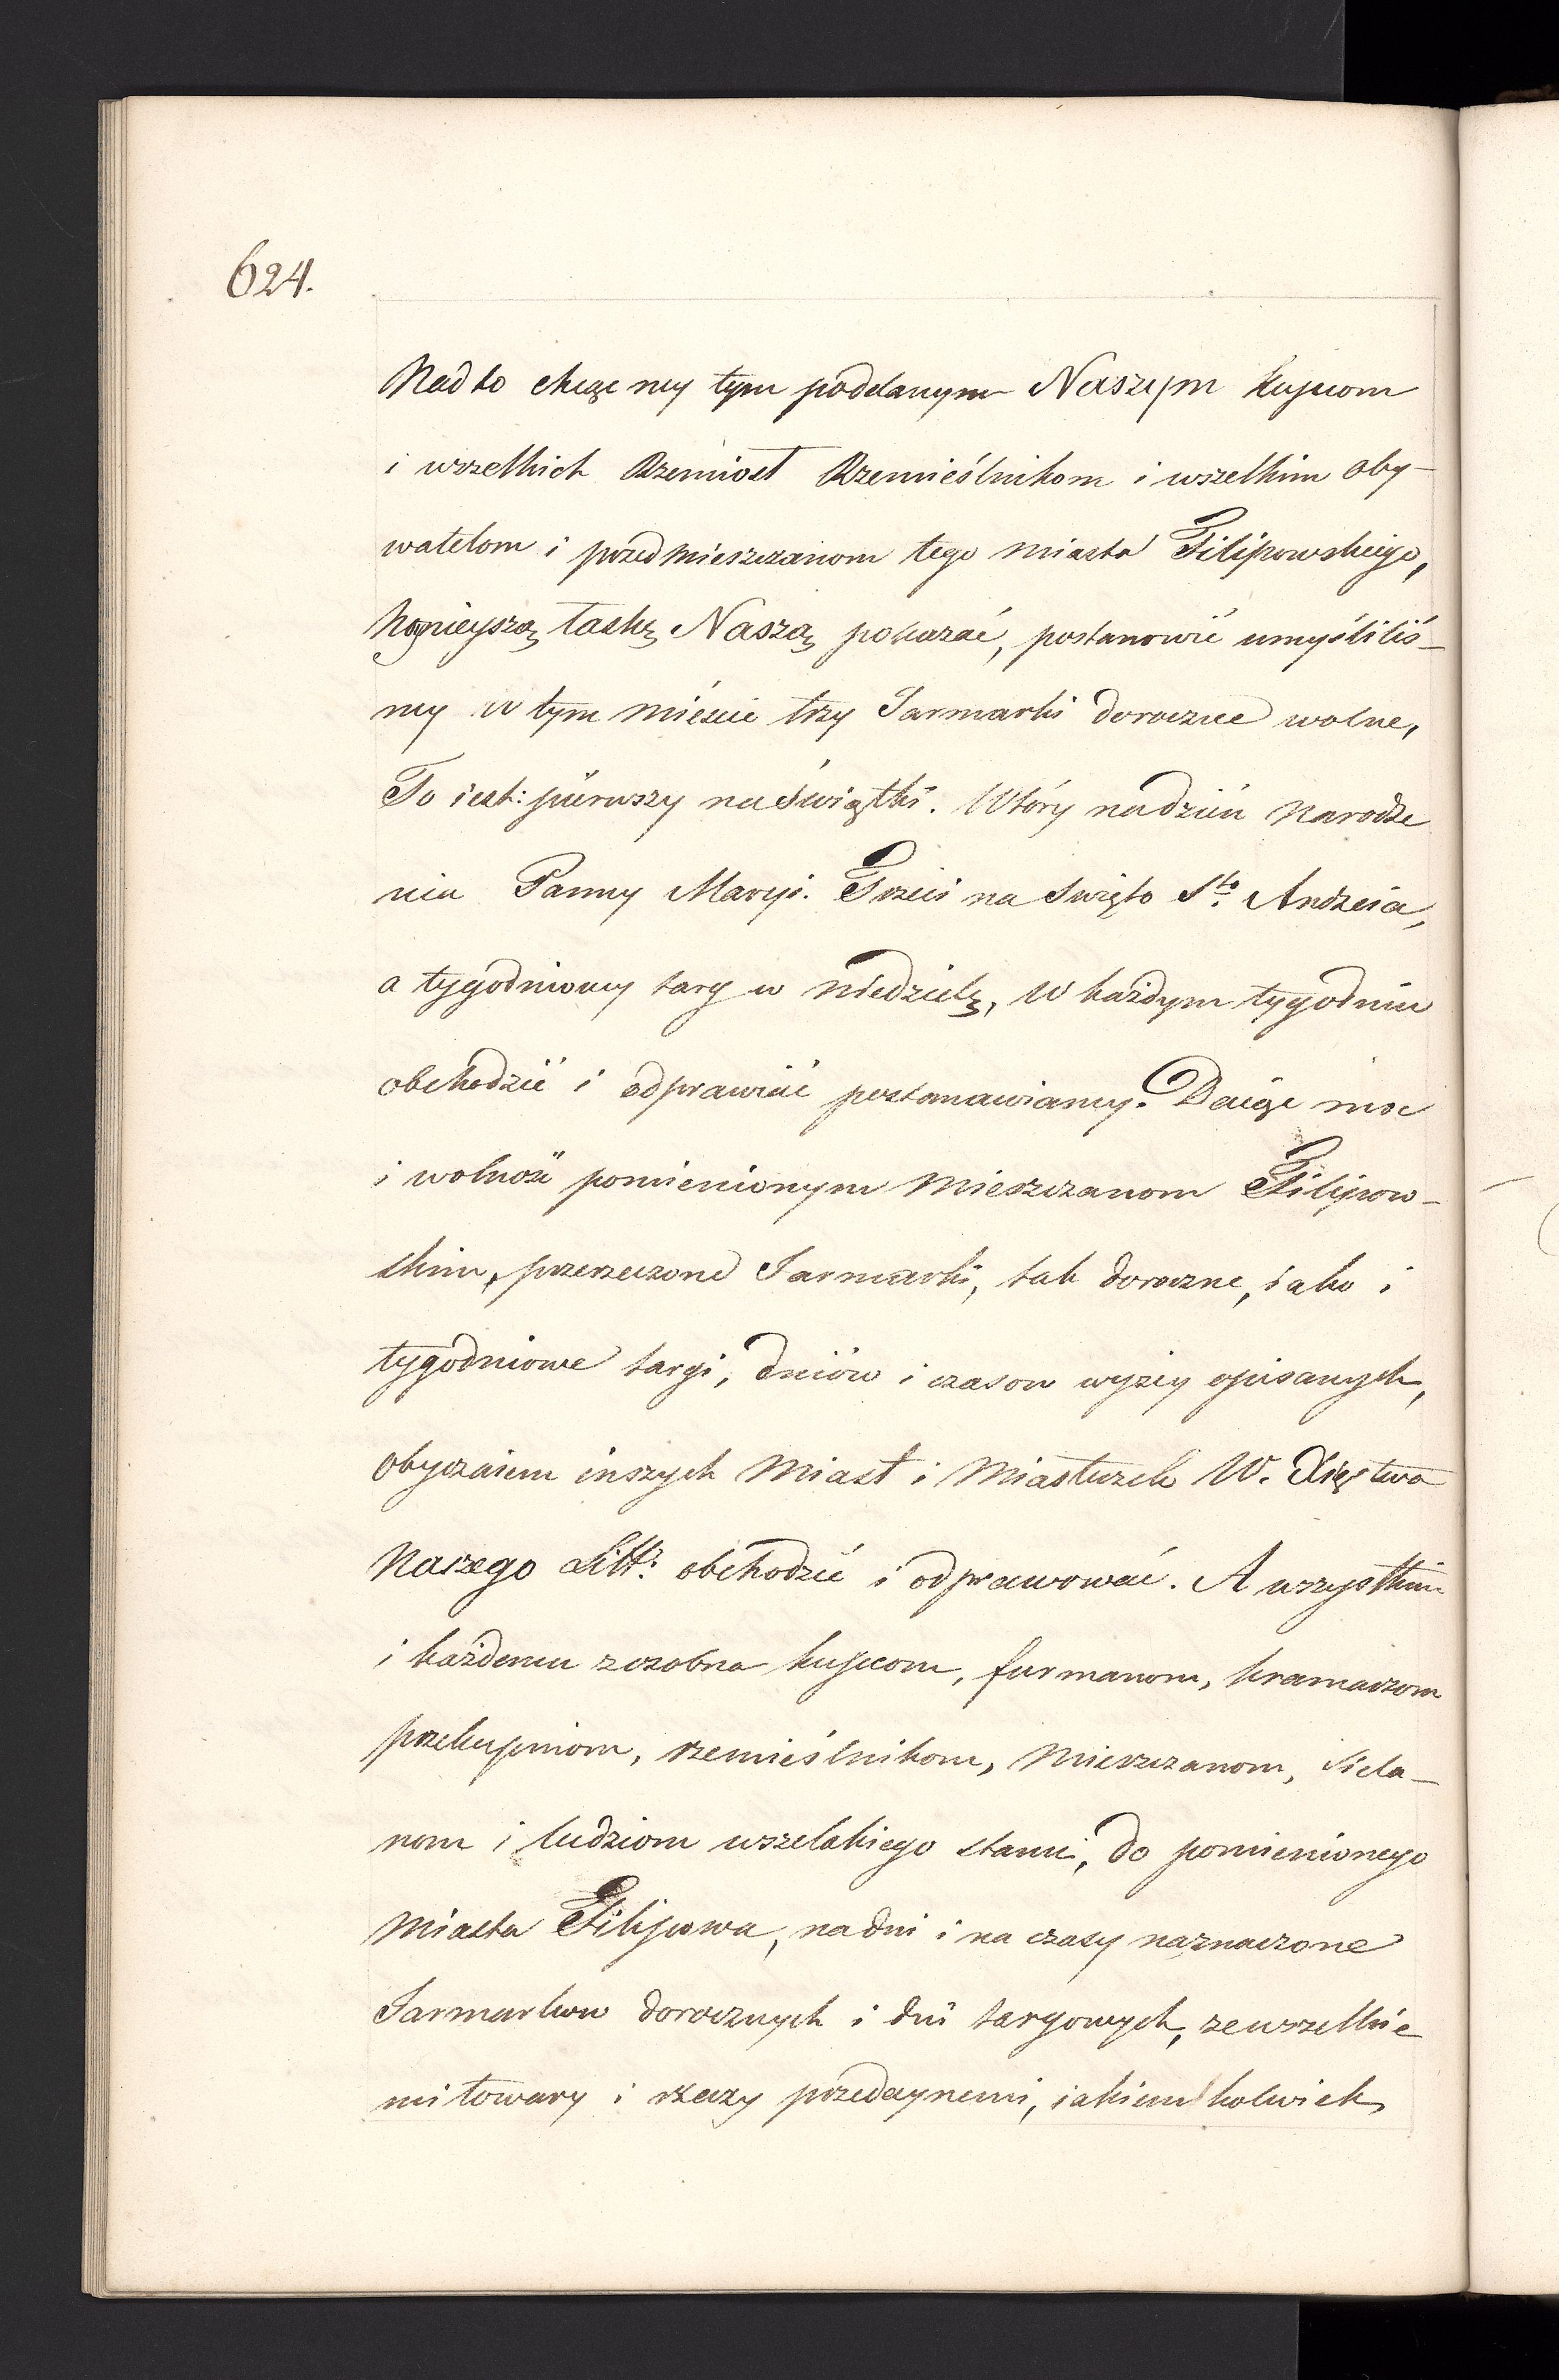 624.
Nadto chcąc my tym poddanym Naszym kupcom
i wszelkich Rzemiosł Rzemieślnikom i wszelkim oby-
watelom i przedmieszczanom tego miasta Filipowskiego,
hoynieyszą łaskę Naszą pokazać, postanowić umyśliliś-
my w tym mieście trzy Jarmarki doroczne wolne,
To iest: pierwszy na świątki. Wtóry na dzień Narodze
nia Panny Maryi. Trzeci na święto Sto. Andrzeia,
a tygodniowy targ w niedzielę, w każdym tygodniu
obchodzić i odprawiać postanawiamy. Daiąc moc
i wolność pomienionym mieszczanom Filipow-
skim, przerzeczone Jarmarki, tak doroczne, iako i
tygodniowe targi, dniów i czasow wyżey opisanych,
obyczaiem inszych Miast i Miasteczek W. Xięstwa
Naszego Litt: obchodzić i odprawować. A wszystkim
i każdemu zosobna kupcom, furmanom, kramarzom
przekupniom, rzemieślnikom, Mieszczanom, siela-
nom i ludziom wszelakiego stanu, do pomienionego
Miasta Filipowa, na dni i na czasy naznaczone
Jarmarkow dorocznych i dni targowych, ze wszelkie
mi towary i rzeczy przedaynemi, iakiemikolwiek